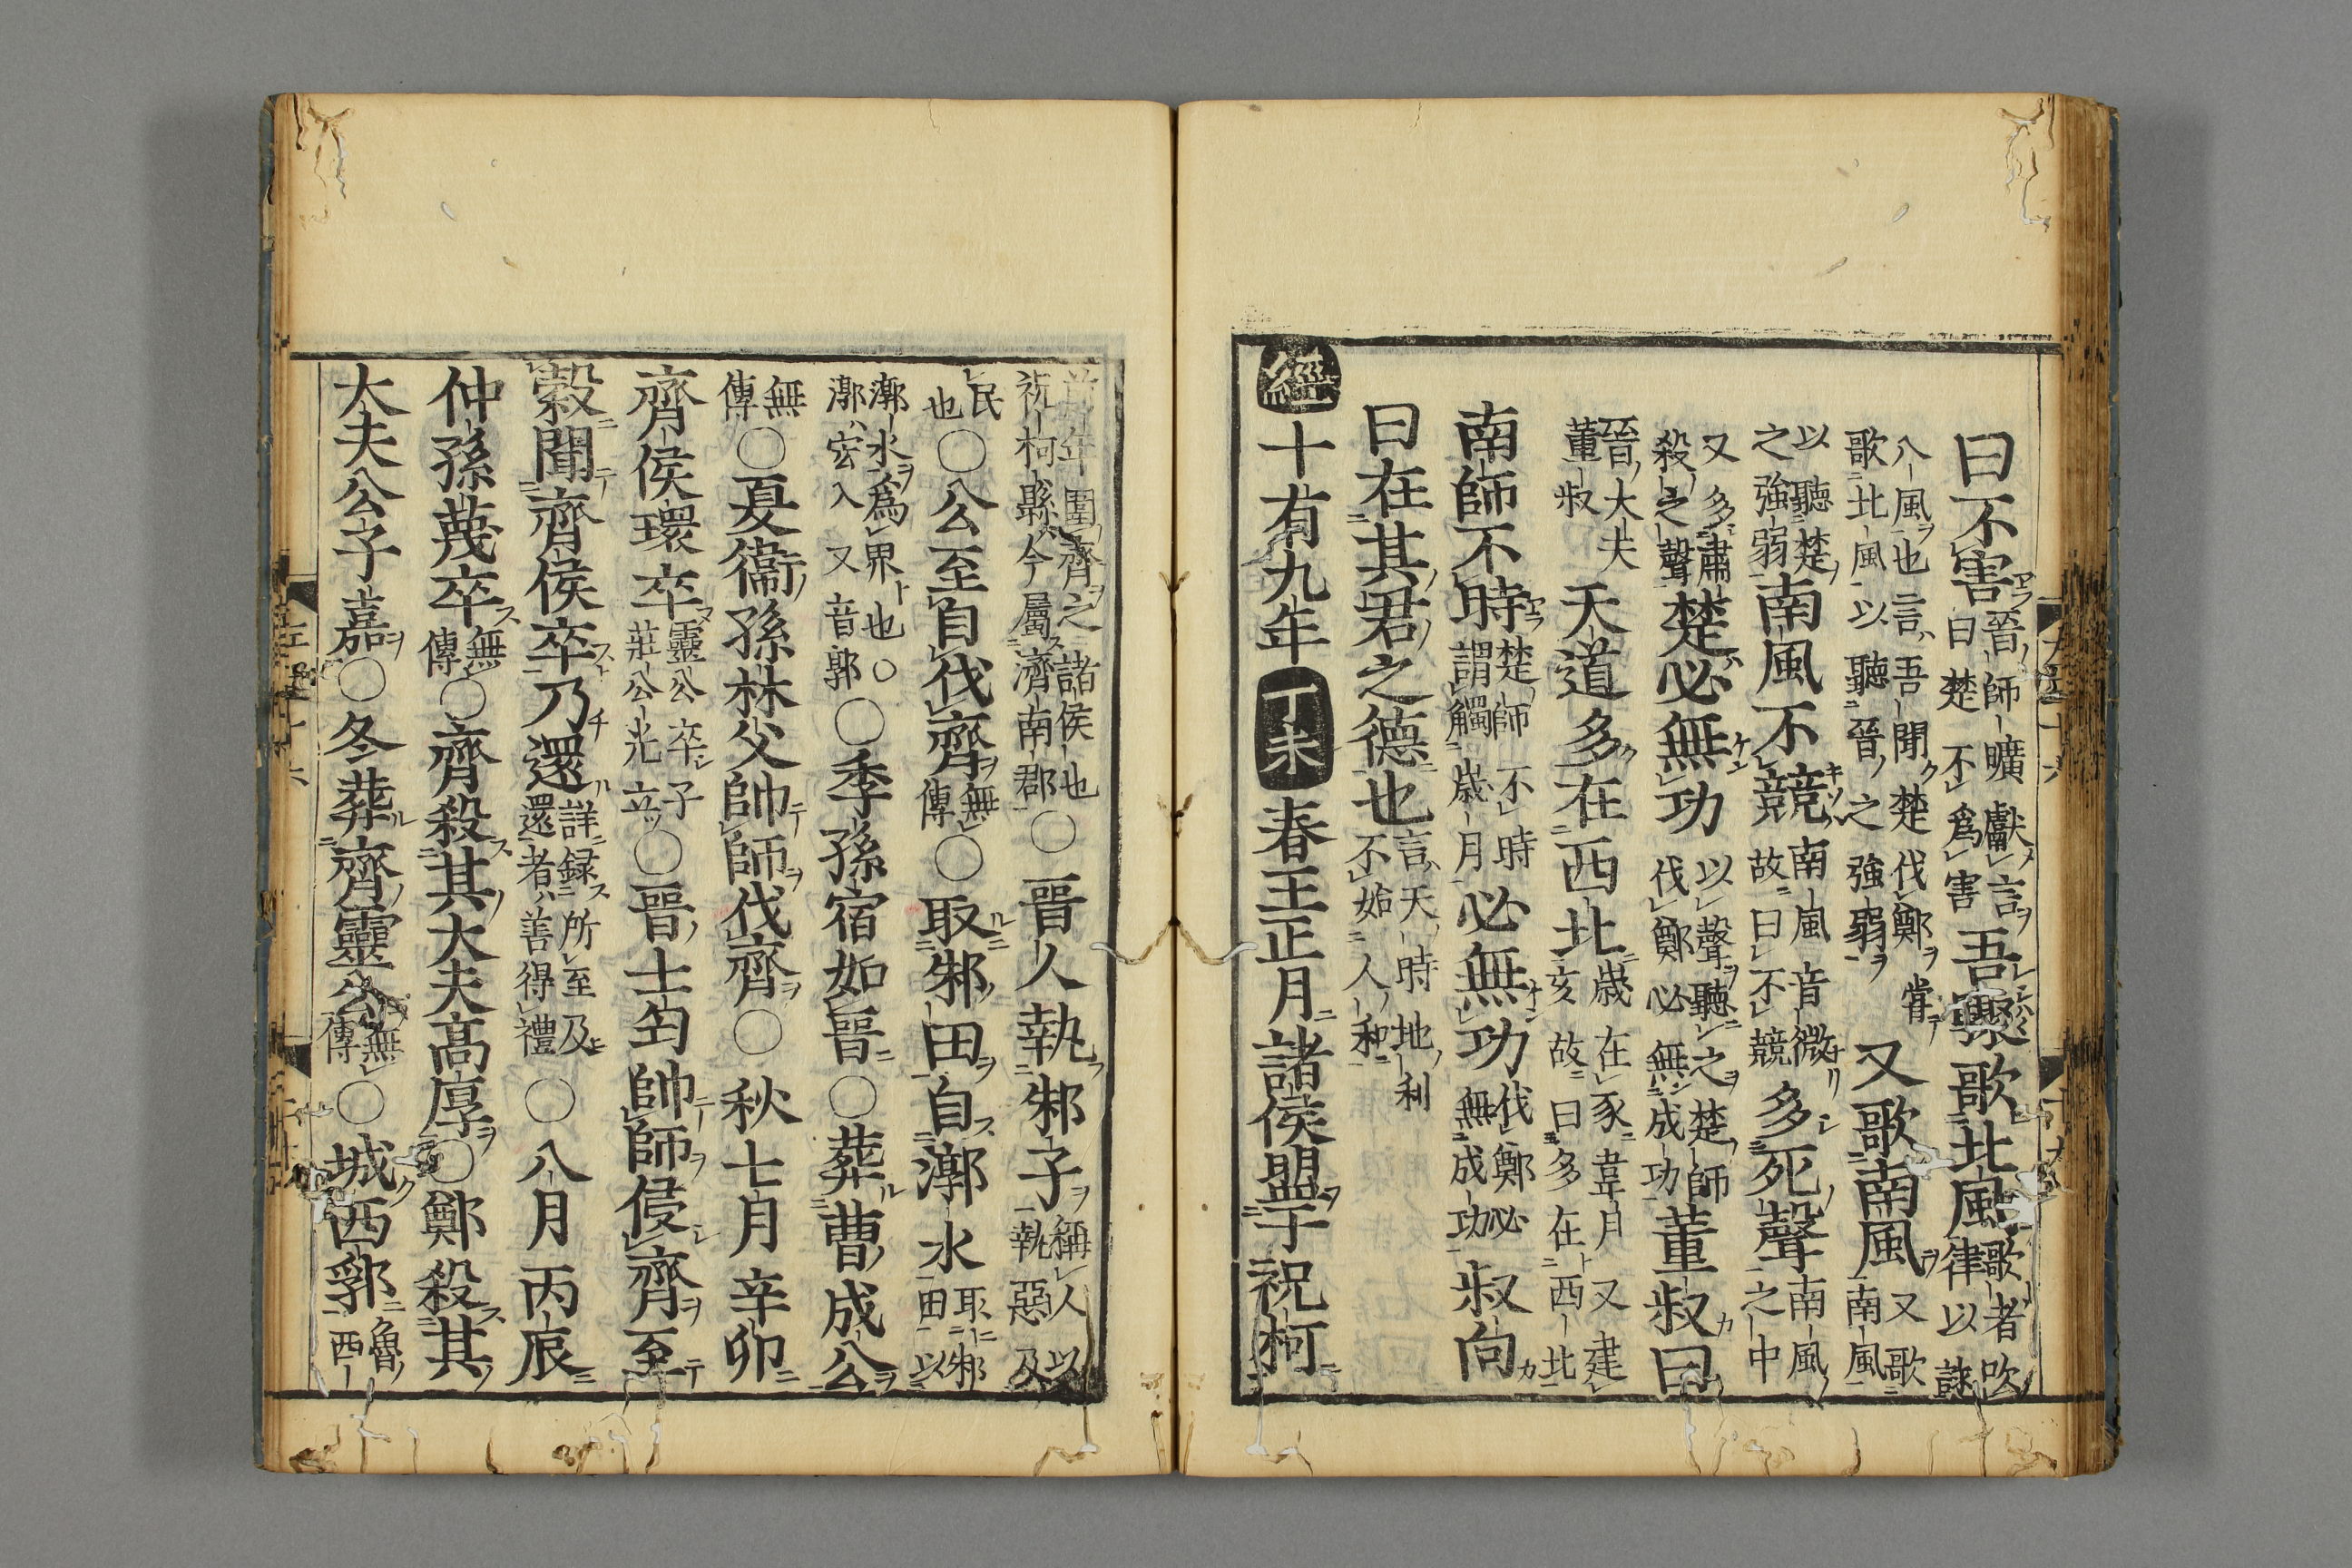 曰不害晉師曠獻言曰楚不爲害吾驟歌北風歌者吹律以詠
八風也言吾聞楚伐鄭嘗歌北風以聽晉之強弱又歌南風又歌南風
以聽楚之強弱南風不競南風音微故曰不競多死聲南風之中
又多肅殺之聲楚必無功以聲聽之楚師伐鄭必無成功董叔曰
晉大夫董叔天道多在西北歲在豕韋月又建亥故曰多在西北
南師不時楚師不時謂觸歲月必無功伐鄭必無成功叔向
曰在其君之德也言天時地利不如人和
經十有九年丁未春王正月諸侯盟于祝柯
前年圍齊之諸侯也祝柯縣今屬濟南郡○晉人執邾子稱人以執惡及
民也○公至自伐齊無傳○取邾田自漷水取邾田以
漷水爲界也○漷宏入又音郭○季孫宿如晉○葬曹成公
無傳○夏衞孫林父帥師伐齊○秋七月辛卯
齊侯環卒靈公卒子莊公光立○晉士匄帥師侵齊至
穀聞齊侯卒乃還詳録所至及還者善得禮○八月丙辰
仲孫蔑卒無傳○齊殺其大夫高厚○鄭殺其
大夫公子嘉○冬葬齊靈公無傳○城西郛魯西